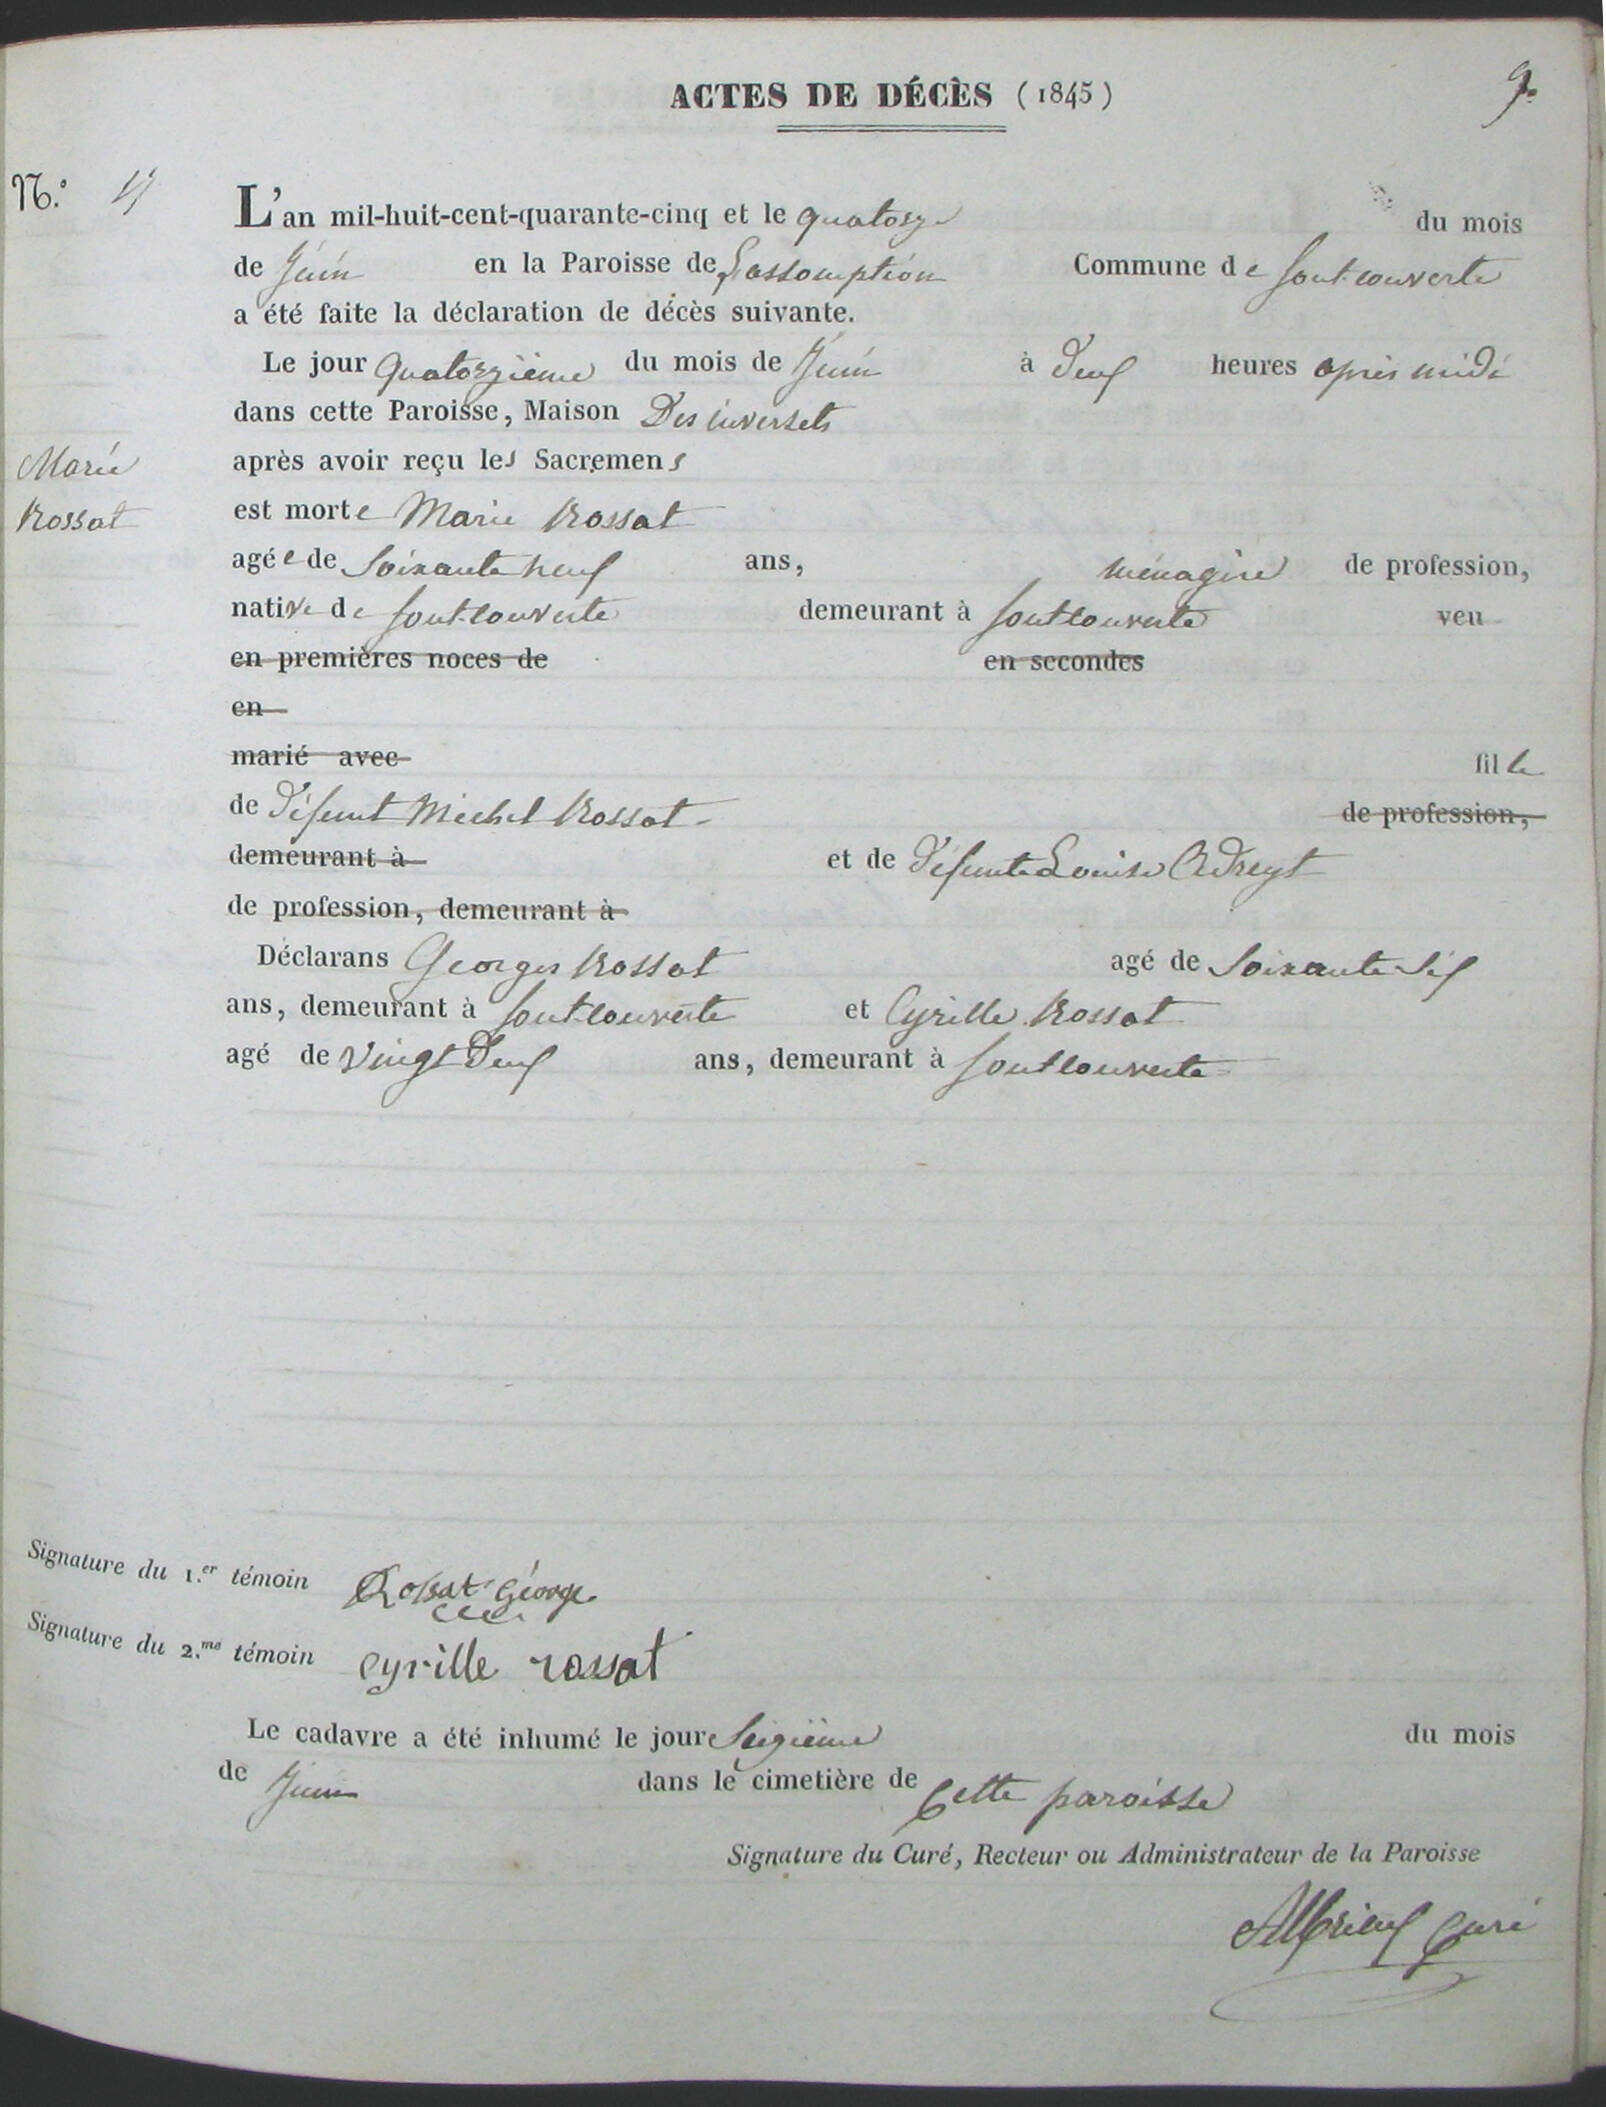 ACTES DE DÉCÈS (1845)
9.
N.° 17
L'an mil-huit-cent-quarante-cinq et le quatorze du mois
de Juin en la Paroisse de L'assomption Commune de fontcouverte
a été faite la déclaration de décès suivante.
Le jour quatorzième du mois de Juin à Deux heures après midi
dans cette Paroisse, Maison Des inversets
après avoir reçu les Sacremens
Marie
Rossat
est morte Marie Rossat
agée de Soixante neuf ans, ménagère de profession,
native de fontcouverte demeurant à fontcouverte veu
en premières noces de en secondes
en
marié avec fille
de Défunt Michel Rossat de profession,
demeurant à et de Défunte Louise Adreyt
de profession, demeurant à
Déclarans Georges Rossat agé de Soixante six
ans, demeurant à fontcouverte et Cyrille Rossat
agé de vingt Deux ans, demeurant à fontcouverte
Signature du 1.er témoin Rossat George
Signature du 2.me témoin cyrille rossat
Le cadavre a été inhumé le jour Seizième du mois
de Juin dans le cimetière de Cette paroisse
Signature du Curé, Recteur ou Administrateur de la Paroisse
Albrieux Curé